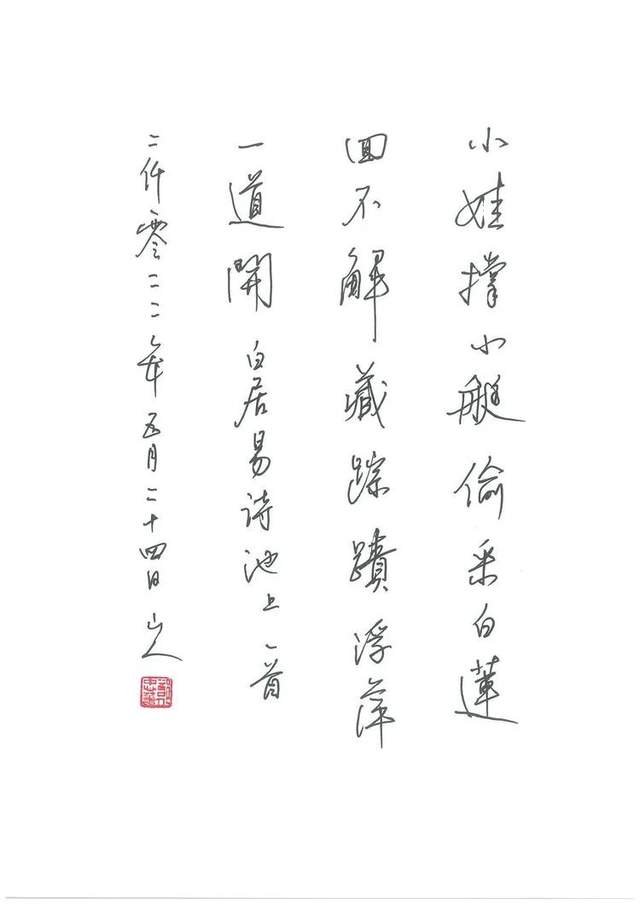 小娃撑小艇偷采白蓮
回不解藏踪蹟浮萍
一道開 白居易诗池上一首
二仟零二二年五月二十四日 山人